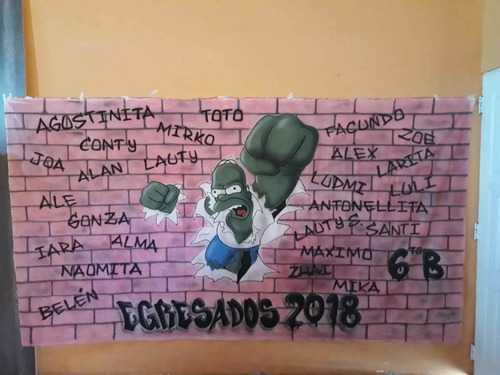 AGOSTINITA
TOTO
CONTY
MIRKO
JOA
ALAN
LAUTY
ALE
GONZA
IARA
ALMA
NAOMITA
BELÉN
FACUNDO
ZOE
ALEX
LARITA
LUDMI
LULI
ANTONELLITA
LAUTY S.
SANTI
MAXIMO
6TO B
ZHAI
MIKA
EGRESADOS 2018